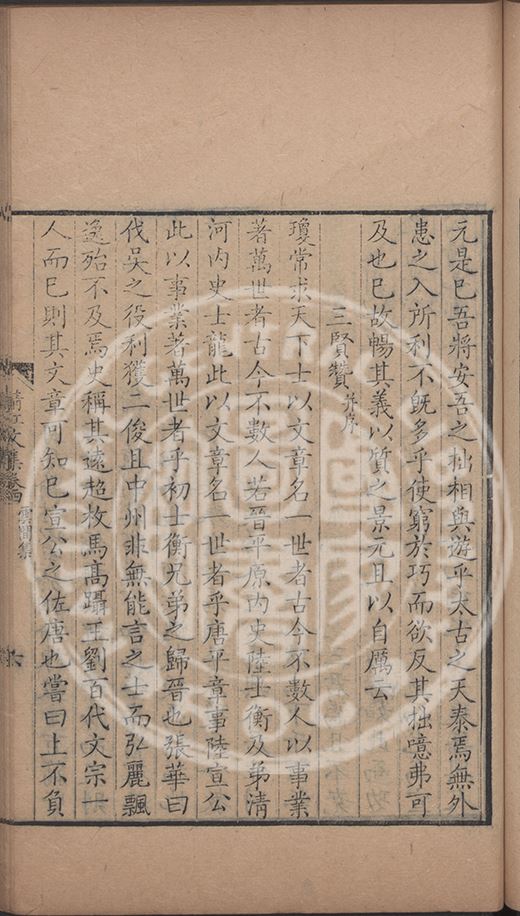 元是已吾將安吾之拙相與遊乎太古之天泰焉無外
患之入所利不既多乎使窮於巧而欲反其拙噫弗可
及也已故暢其義以質之景元且以自厲云
三賢贊并序
瓊常求天下士以文章名一世者古今不數人以事業
著萬世者古今不數人若晉平原內史陸士衡及弟清
河內史士龍此以文章名一世者乎唐平章事陸宣公
此以事業著萬世者乎初士衡兄弟之歸晉也張華曰
伐吳之役利獲二俊且中州非無能言之士而弘麗飄
逸殆不及焉史稱其遠超枚馬高躡王劉百代文宗一
人而已則其文章可知已宣公之佐唐也嘗曰上不負
清江文集卷四 雲間集